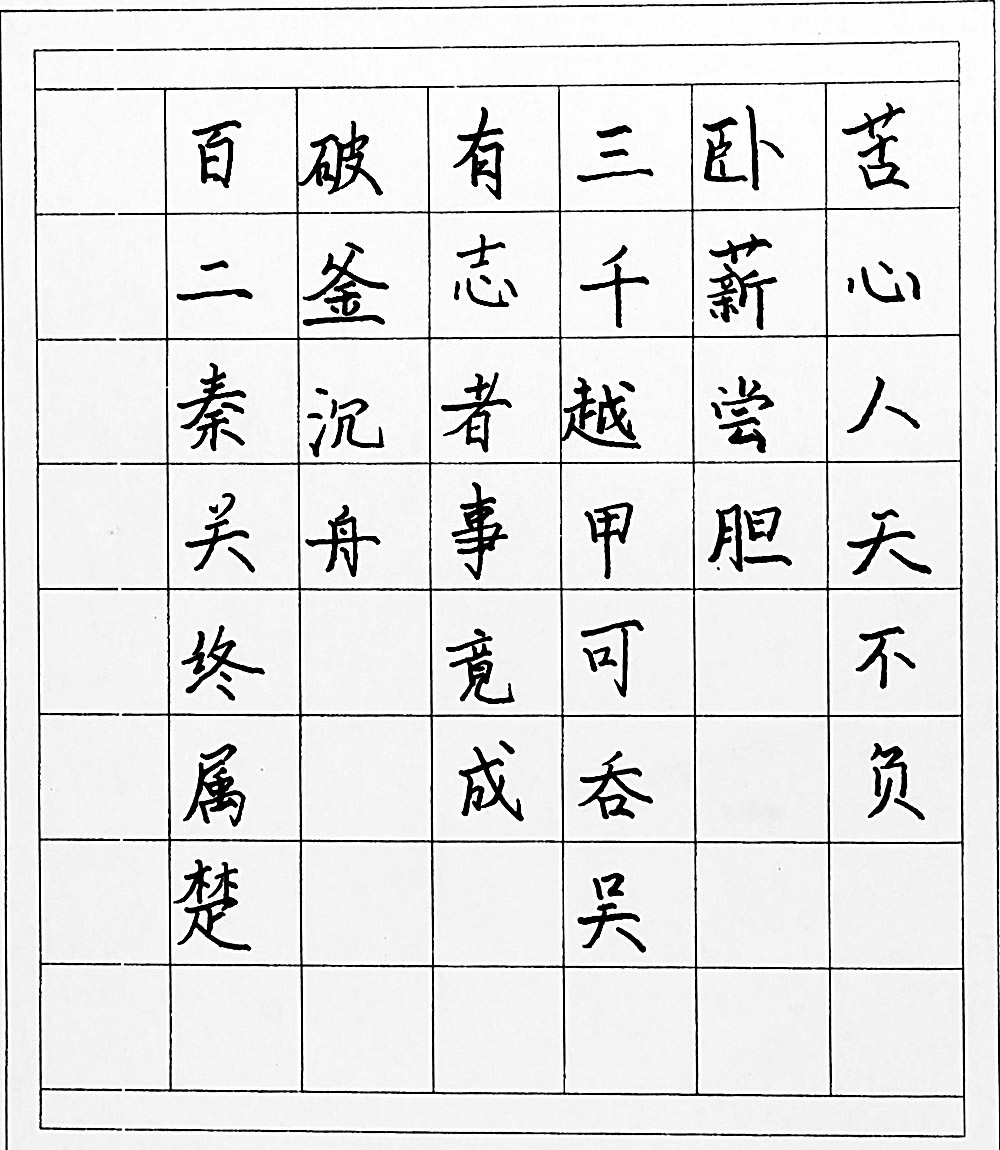 苦心人天不负
卧薪尝胆
三千越甲可吞吴
有志者事竟成
破釜沉舟
百二秦关终属楚